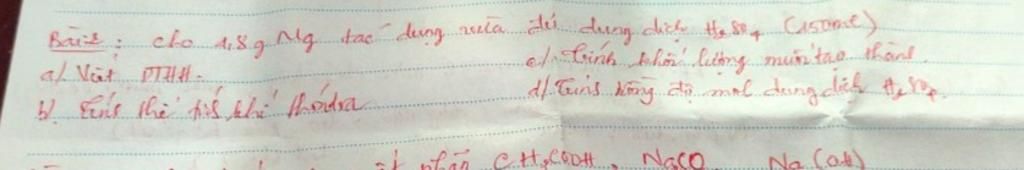 Bài 2: cho 4,8g Mg tác dụng vừa đủ dung dịch H2SO4 (150ml)
a/ Viết PTHH.
b/ Tính thể tích khí thoát ra
c/ Tính khối lượng muối tạo thành.
d/ Tính nồng độ mol dung dịch H2SO4.
nhãn CH3COOH, Na2CO Na(OH)